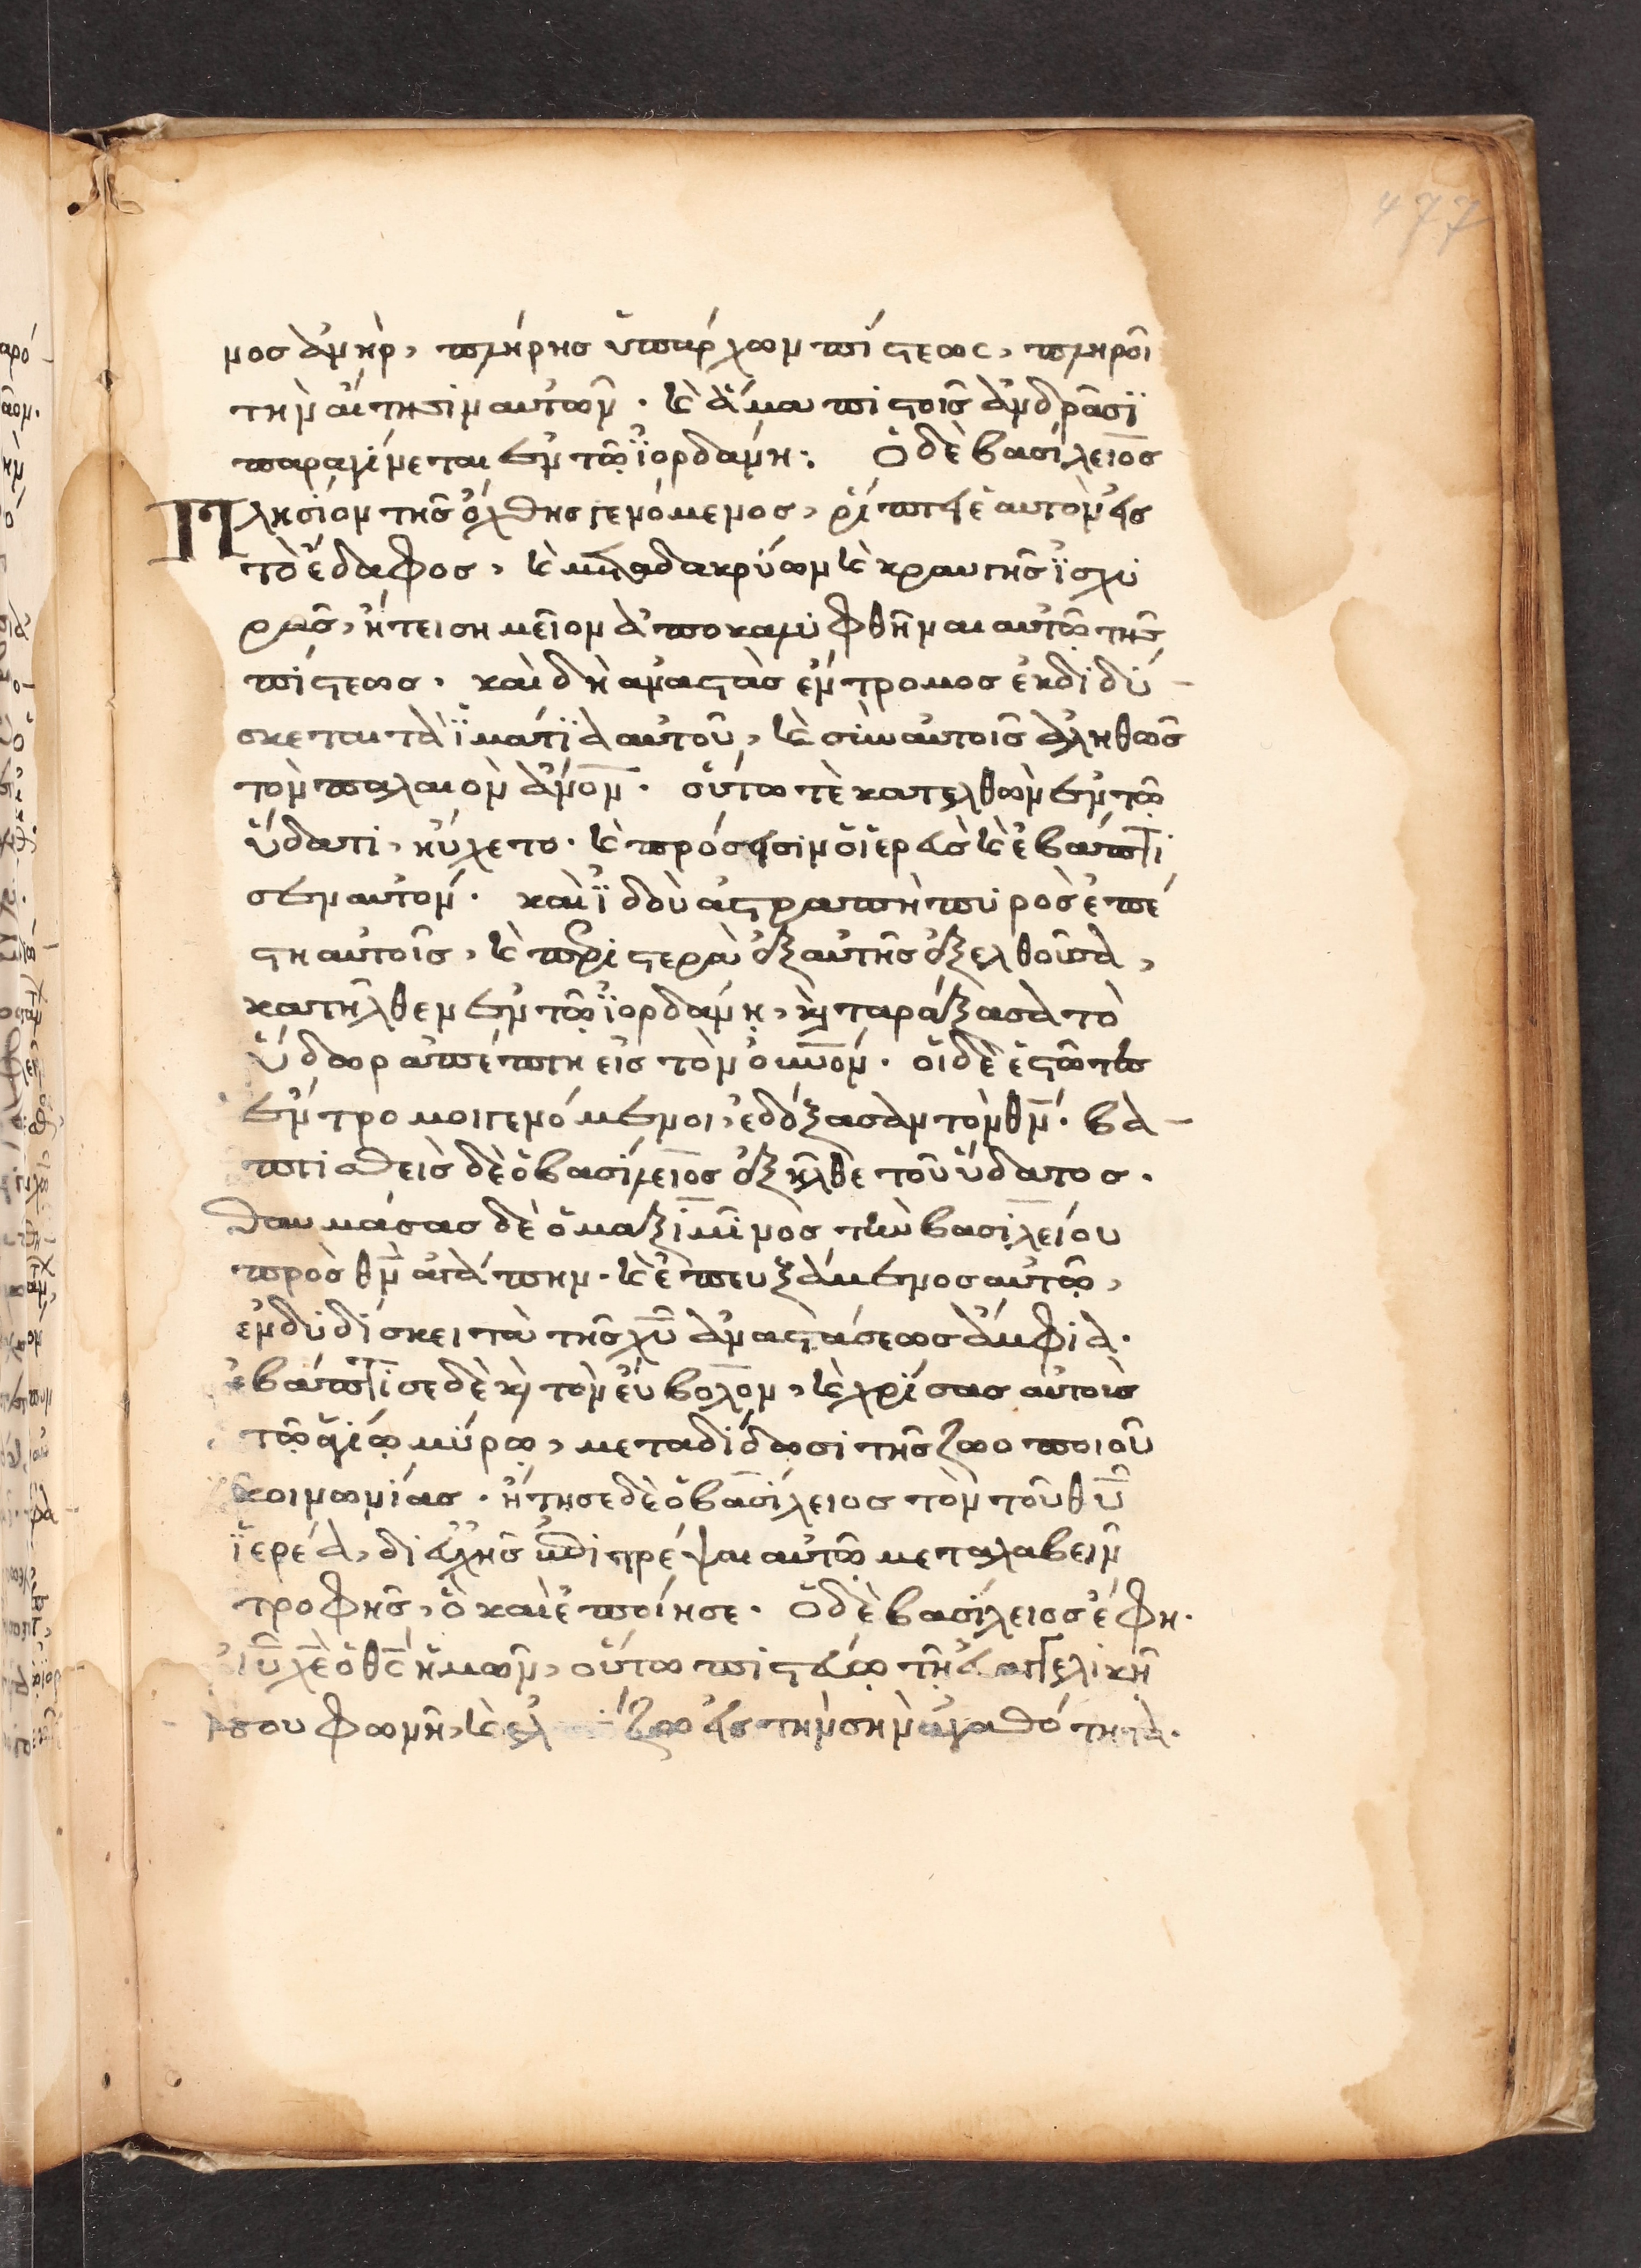 477
μος ἀνὴρ, πλήρης ὑπάρχων πίστεως, πληροῖ
τὴν αἴτησιν αὐτῶν. κὲ ἅμα πιστοῖς ἀνδράσϊ
παραγίνεται ἐν τῶ ϊορδάνη: Ὁ δὲ βασίλειος
Πλησίον τῆς ὄχθης γενόμενος, ῥίπτει ἑαυτὸν εἰς
τὸ ἔδαφος, κὲ μετὰ δακρύων κὲ κραυγῆς ϊσχυ
ρᾶς, ἤτει σημεῖον ἀποκαλυφθῆναι αὐτῶ τῆς
πίστεως. καὶ δὴ ἀναστὰς ἔντρομος ἐκδιδύ-
σκεται τὰ ϊμάτϊα αὐτοῦ, κὲ σὺν αὐτοῖς ἀληθῶς
τὸν παλαιὸν ἄν̅ο̅ν̅. οὕτω τὲ κατελθὼν ἐν τῶ
ὕδατι, ηὔχετο. κὲ πρόσεισιν ὁ ϊερεὺς κὲ ἐβάπτι
σεν αὐτόν. καὶ ϊδοὺ ἀστραπὴ πυρὸς ἐπέ
στη αὐτοῖς, κὲ περιστερὰ ἐξ αὐτῆς ἐξελθοῦσα,
κατῆλθεν ἐν τῶ ϊορδάνη, κὲ ταράξασα τὸ
ὕδωρ ἀπέπτη εἰς τὸν ο̅υ̅ν̅ό̅ν̅. οἱ δὲ ἑστῶτες
ἔντρομοι γενόμενοι, ἐδόξασαν τὸν θ̅ν̅. βα-
πτισθεὶς δὲ ὁ βασίλειος ἐξῆλθε τοῦ ὕδατος.
θαυμάσας δὲ ὁ μαξιμῖνος τὴν βασιλείου
πρὸς θ̅ν̅ ἀγάπην. κὲ ἐπευξάμενος αὐτῶ,
ἐνδυδίσκει τὰ τῆς χ̅υ̅ ἀναστάσεως ἄμφια.
ἐβάπτισε δὲ κὲ τὸν εὔβολον, κὲ χρίσας αὐτοὺς
τῶ ἁγίω μύρω, μεταδίδωσι τῆς ζωοποιοῦ
κοινωνίας. ἤτησε δὲ ὁ βασίλειος τὸν τοῦ θ̅υ̅
ϊερέα, δι εὐχῆς ἐπιτρέψαι αὐτῶ μεταλαβεῖν
τροφῆς, ὃ καὶ ἐποίησε. Ὁ δὲ βασίλειος ἔφη.
ι̅υ̅ χ̅ε̅ ὁ θ̅ς̅ ἡμῶν, οὕτω πιστεύω τῆ εὐαγγελικῆ
σου φωνῆ, κὲ ἐλπίζω εἰς τὴν σὴν ἀγαθότητα.